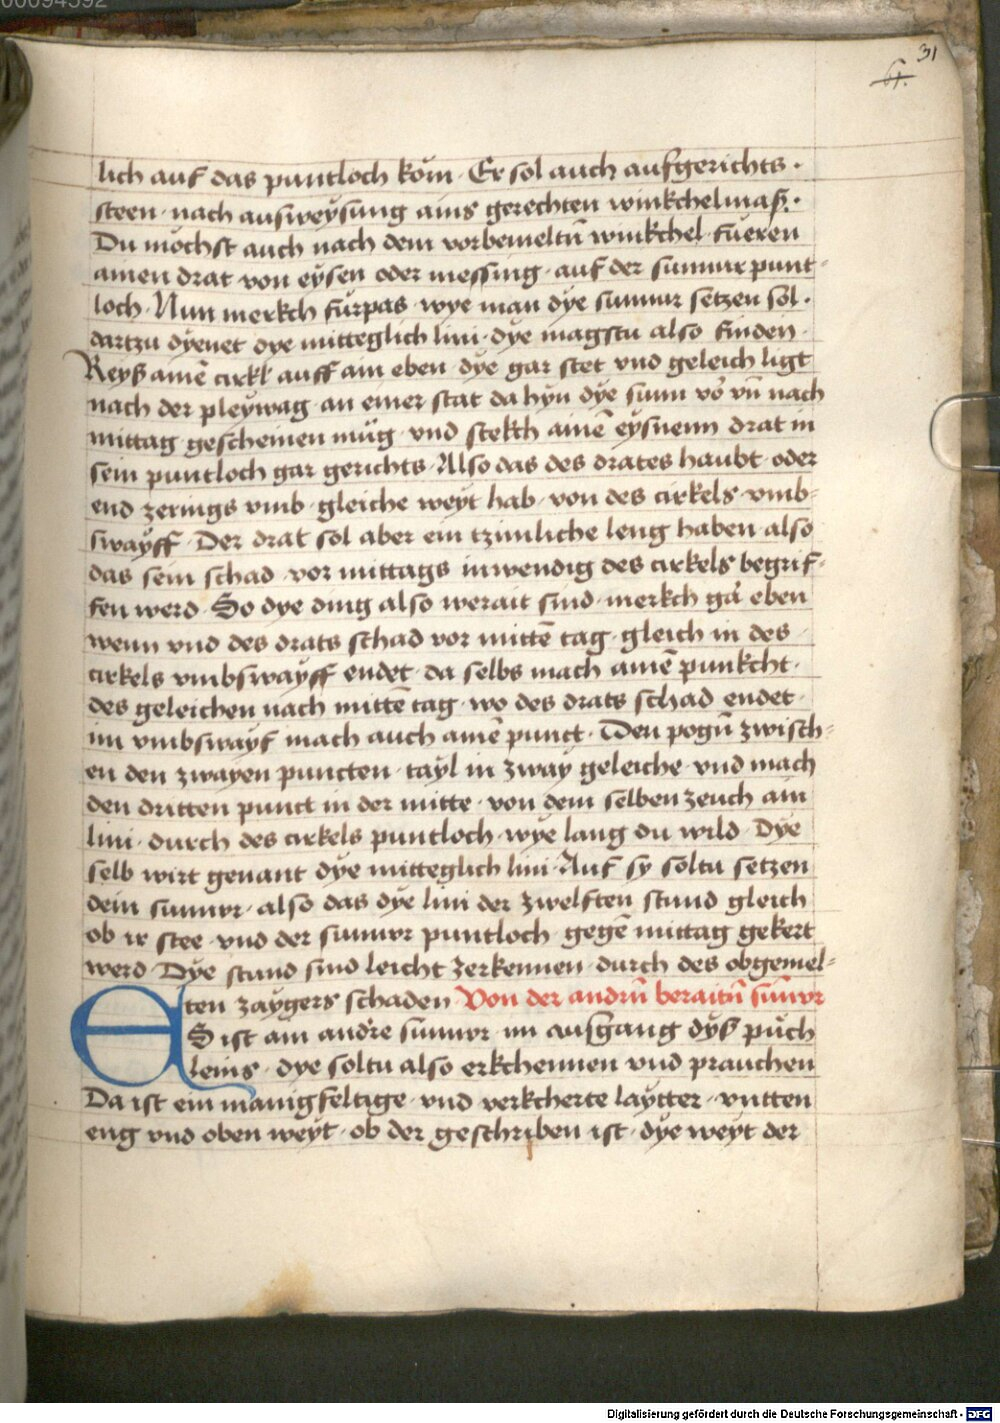 00094592
31
61.
lich auf das puntloch köm · Er sol auch aufgerichts ·
steen · nach ausweÿsung ains gerechten winkchelmaß ·
Du möchst auch nach dem vorbemeltn̄ winkchel · füeren
ainen drat von eÿsen oder messing · auf der sunnur punt-
loch · Nun merkch fürpas · wÿe man dÿe sunnur setzen sol ·
dartzu dÿenet dÿe mitteglich lini · dÿe magstu also finden ·
Reÿß ainē cirkl auff ain eben · dÿe gar stet vnd geleich ligt
nach der pleÿwag · an einer stat da hÿn dÿe sunn vo᷑ vn̄ nach
mittag gescheinen müg · vnd stekch ainē eÿsnenn drat in
sein puntloch gar gerichts · Also das des drates haubt · oder
end zerings vmb · gleiche weÿt hab · von des cirkels · vmb-
swaÿff · Der drat sol aber ein tzimliche leng haben · also
das sein schad · vor mittags inwendig des cirkels begrif-
fen werd · So dÿe ding also werait sind · merkch ga᷑ eben
wenn vnd des drats schad vor mittē tag · gleich in des ·
cirkels vmbswaÿff endet · da selbs mach ainē punkcht ·
des geleichen nach mittē tag · wo des drats schad endet ·
im vmbswaÿf mach auch ainē punct · Den pogn̄ zwisch-
en den zwaÿen puncten · taÿl in zwaÿ geleiche · vnd mach
den dritten punct in der mitte · von dem selben zeuch ain
lini · durch des cirkels puntloch · wÿe lang du wild · Dÿe
selb wirt genant dÿe mitteglich lini · Auf sÿ soltu setzen
dein sunnvr · also das dÿe lini der zwelften stund gleich
ob ir stee · vnd der sunnvr puntloch · gegē mittag gekert
werd · Dÿe stund sind leicht zerkennen · durch des obgemel-
ten zaÿgers schaden Von der andrn̄ beraitn̄ sūnvr
ES ist ain andre sunnvr · im ausgang dÿß püch
leins · dÿe soltu also erkchennen vnd prauchen
Da ist ein manigfeltige · vnd verkcherte laÿtter · vntten
eng vnd oben weÿt · ob der geschriben ist · dÿe weÿt der
Digitalisierung gefördert durch die Deutsche Forschungsgemeinschaft - DFG